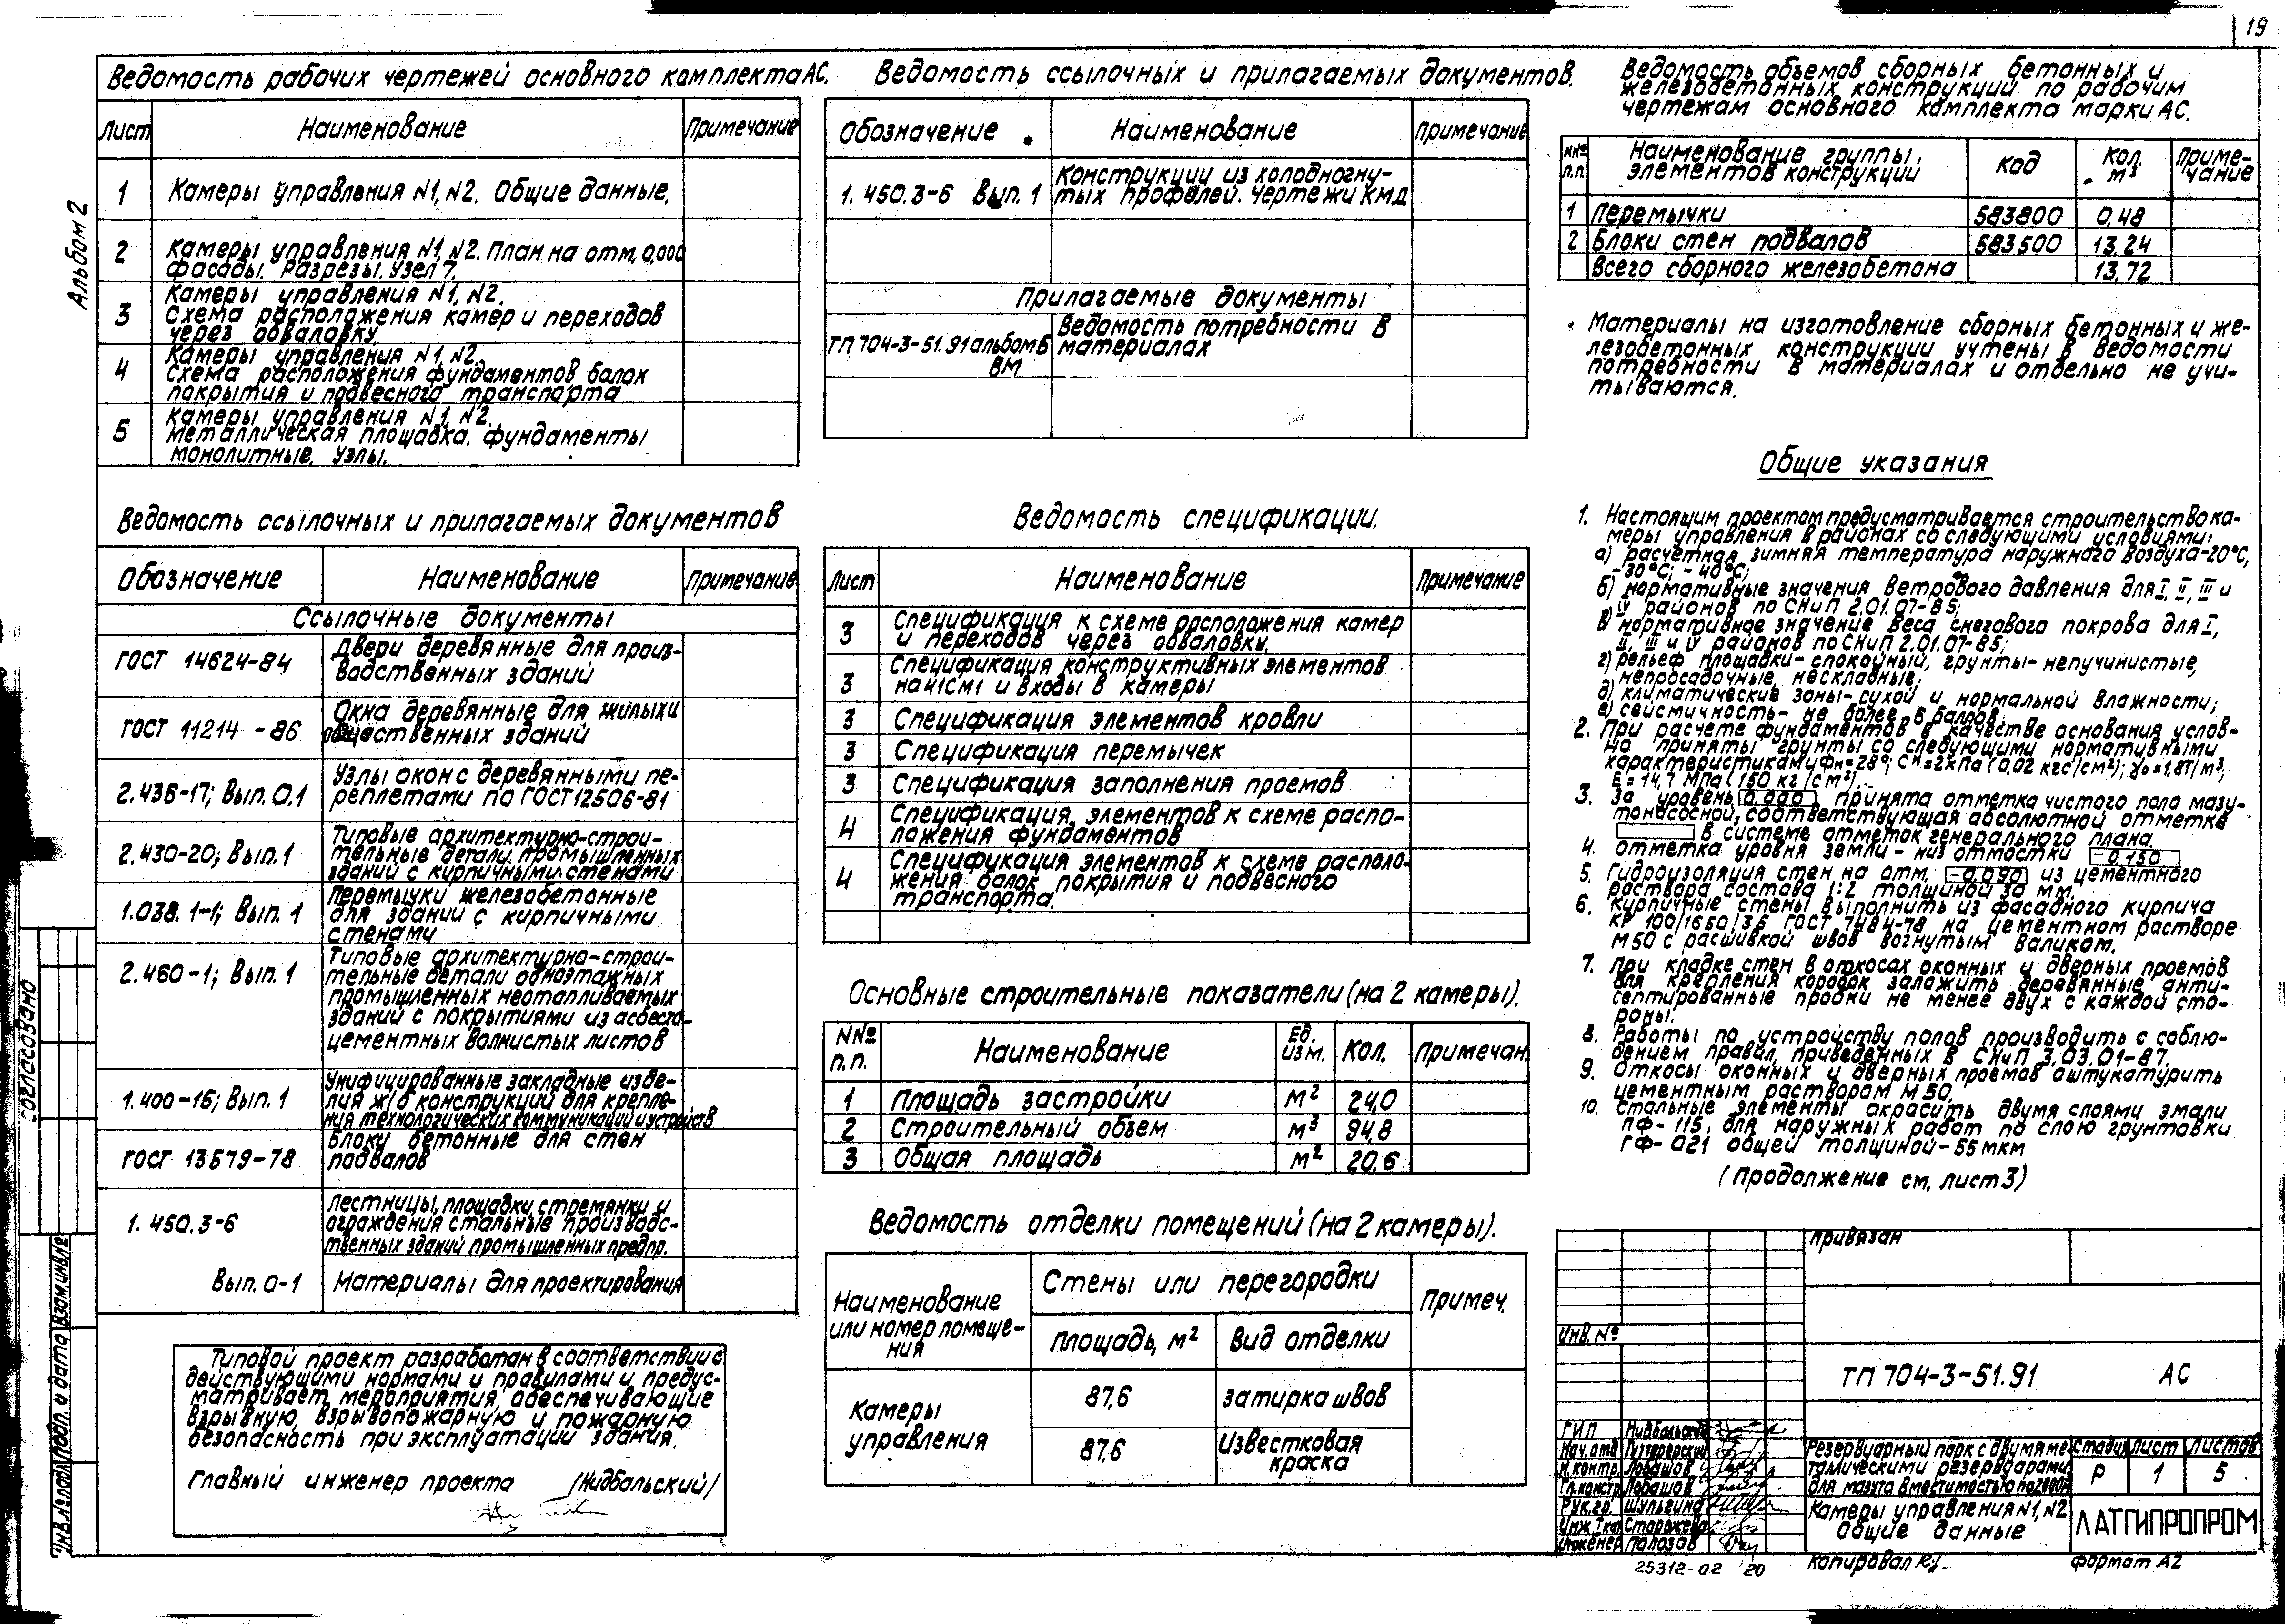 19
Альбом 2
Ведомость рабочих чертежей основного комплекта АС.
Лист Наименование Примечание
1 Камеры управления N1, N2. Общие данные.
2 Камеры управления N1, N2. План на отм. 0,000
Фасады. Разрезы. Узел 7.
3 Камеры управления N1, N2.
Схема расположения камер и переходов
через обваловку
4 Камеры управления N1, N2.
Схема расположения фундаментов балок
покрытия и подвесного транспорта
5 Камеры управления N1, N2.
Металлическая площадка. Фундаменты
монолитные. Узлы.
Ведомость ссылочных и прилагаемых документов
Обозначение Наименование Примечание
Ссылочные документы
ГОСТ 14624-84 Двери деревянные для произ-
водственных зданий
ГОСТ 11214-86 Окна деревянные для жилых и
общественных зданий
2.436-17; Вып. 0.1 Узлы окон с деревянными пе-
реплетами по ГОСТ 12506-81
2.430-20; Вып. 1 Типовые архитектурно-строи-
тельные детали промышленных
зданий с кирпичными стенами
1.038.1-1; Вып. 1 Перемычки железобетонные
для зданий с кирпичными
стенами
2.460-1; Вып. 1 Типовые архитектурно-строи-
тельные детали одноэтажных
промышленных неотапливаемых
зданий с покрытиями из асбесто-
цементных волнистых листов
1.400-15; Вып. 1 Унифицированные закладные изде-
лия ж/б конструкций для крепле-
ния технологических коммуникаций и устройств
ГОСТ 13579-78 Блоки бетонные для стен
подвалов
1.450.3-6 Лестницы, площадки, стремянки и
ограждения стальные производс-
твенных зданий промышленных предпр.
Вып. 0-1 Материалы для проектирования
Типовой проект разработан в соответствии с
действующими нормами и правилами и предус-
матривает мероприятия, обеспечивающие
взрывную, взрывопожарную и пожарную
безопасность при эксплуатации здания.
Главный инженер проекта /Нидбальский/
Ведомость ссылочных и прилагаемых документов.
Обозначение Наименование Примечание
1.450.3-6 Вып. 1 Конструкции из холодногну-
тых профилей. Чертежи КМД
Прилагаемые документы
ТП 704-3-51.91 альбом 6 Ведомость потребности в
ВМ материалах
Ведомость спецификации.
Лист Наименование Примечание
3 Спецификация к схеме расположения камер
и переходов через обваловку.
3 Спецификация конструктивных элементов
на 41СМ1 и входы в камеры
3 Спецификация элементов кровли
3 Спецификация перемычек
3 Спецификация заполнения проемов
4 Спецификация элементов к схеме распо-
ложения фундаментов
4 Спецификация элементов к схеме располо-
жения балок покрытия и подвесного
транспорта.
Основные строительные показатели (на 2 камеры).
NNº п.п. Наименование Ед. изм. Кол. Примечан.
1 Площадь застройки м² 24,0
2 Строительный объем м³ 94,8
3 Общая площадь м² 20,6
Ведомость отделки помещений (на 2 камеры).
Наименование или номер помеще-
ния Стены или перегородки Примеч.
Площадь, м² Вид отделки
Камеры управления 87,6 затирка швов
87,6 Известковая краска
Ведомость объемов сборных бетонных и
железобетонных конструкций по рабочим
чертежам основного комплекта марки АС.
NNº п.п. Наименование группы, элементов конструкции Код Кол. м³ Приме-
чание
1 Перемычки 583800 0,48
2 Блоки стен подвалов 583500 13,24
Всего сборного железобетона 13,72
Материалы на изготовление сборных бетонных и же-
лезобетонных конструкции учтены в ведомости
потребности в материалах и отдельно не учи-
тываются.
Общие указания
1. Настоящим проектом предусматривается строительство ка-
меры управления в районах со следующими условиями:
а) расчетная зимняя температура наружного воздуха -20°С,
-30°С; -40°С;
б) нормативные значения ветрового давления для I, II, III и
IV районов по СНиП 2.01.07-85;
в) нормативное значение веса снегового покрова для I,
II, III и IV районов по СНиП 2.01.07-85;
г) рельеф площадки - спокойный, грунты - непучинистые,
непросадочные, нескладные;
д) климатические зоны - сухой и нормальной влажности;
е) сейсмичность - не более 6 баллов.
2. При расчете фундаментов в качестве основания услов-
но приняты грунты со следующими нормативными
характеристиками φн=28°; Сн=2кПа (0,02 кгс/см²); γо=1,8т/м³,
Е=14,7 МПа (150 кг/см²).
3. За уровень 0.000 принята отметка чистого пола мазу-
тонасосной, соответствующая абсолютной отметке
в системе отметок генерального плана.
4. Отметка уровня земли - низ отмостки -0.150
5. Гидроизоляция стен на отм. -0.090 из цементного
раствора состава 1:2 толщиной 30 мм.
6. Кирпичные стены выполнить из фасадного кирпича
КР 100/1650/35 ГОСТ 7484-78 на цементном растворе
М50 с расшивкой швов вогнутым валиком.
7. При кладке стен в откосах оконных и дверных проемов
для крепления коробок заложить деревянные анти-
септированные пробки не менее двух с каждой сто-
роны.
8. Работы по устройству полов производить с соблю-
дением правил, приведенных в СНиП 3.03.01-87.
9. Откосы оконных и дверных проемов оштукатурить
цементным раствором М50.
10. Стальные элементы окрасить двумя слоями эмали
ПФ-115, для наружных работ по слою грунтовки
ГФ-021 общей толщиной - 55 мкм
(Продолжение см. лист 3)
Привязан
Инв. Nº
ТП 704-3-51.91 АС
ГИП Нидбальский
Нач. отд.
Н. контр. Лобашов
Гл. констр. Лобашов
Рук. гр. Шульгина
Инж. Iкат Сторожева
Инженер Палозов
Резервуарный парк с двумя ме-
таллическими резервуарами
для мазута вместимостью по
Стадия Лист Листов
Р 1 5
Камеры управления N1, N2
Общие данные
ЛАТГИПРОПРОМ
25312-02 20
Копировал
Формат А2
Согласовано
Взам. инв. Nº
Подп. и дата
Инв. Nº подл.